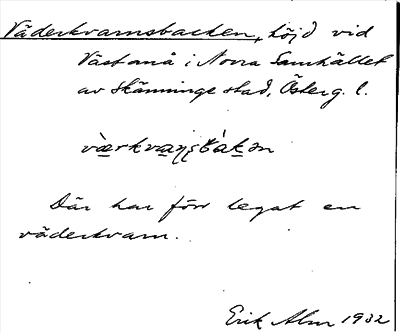 Väderkvarnsbacken, höjd vid
Västanå i Norra Samhället
av Skänninge stad, Österg. l.
Där har förr legat en
väderkvarn.
Erik Alm 1932